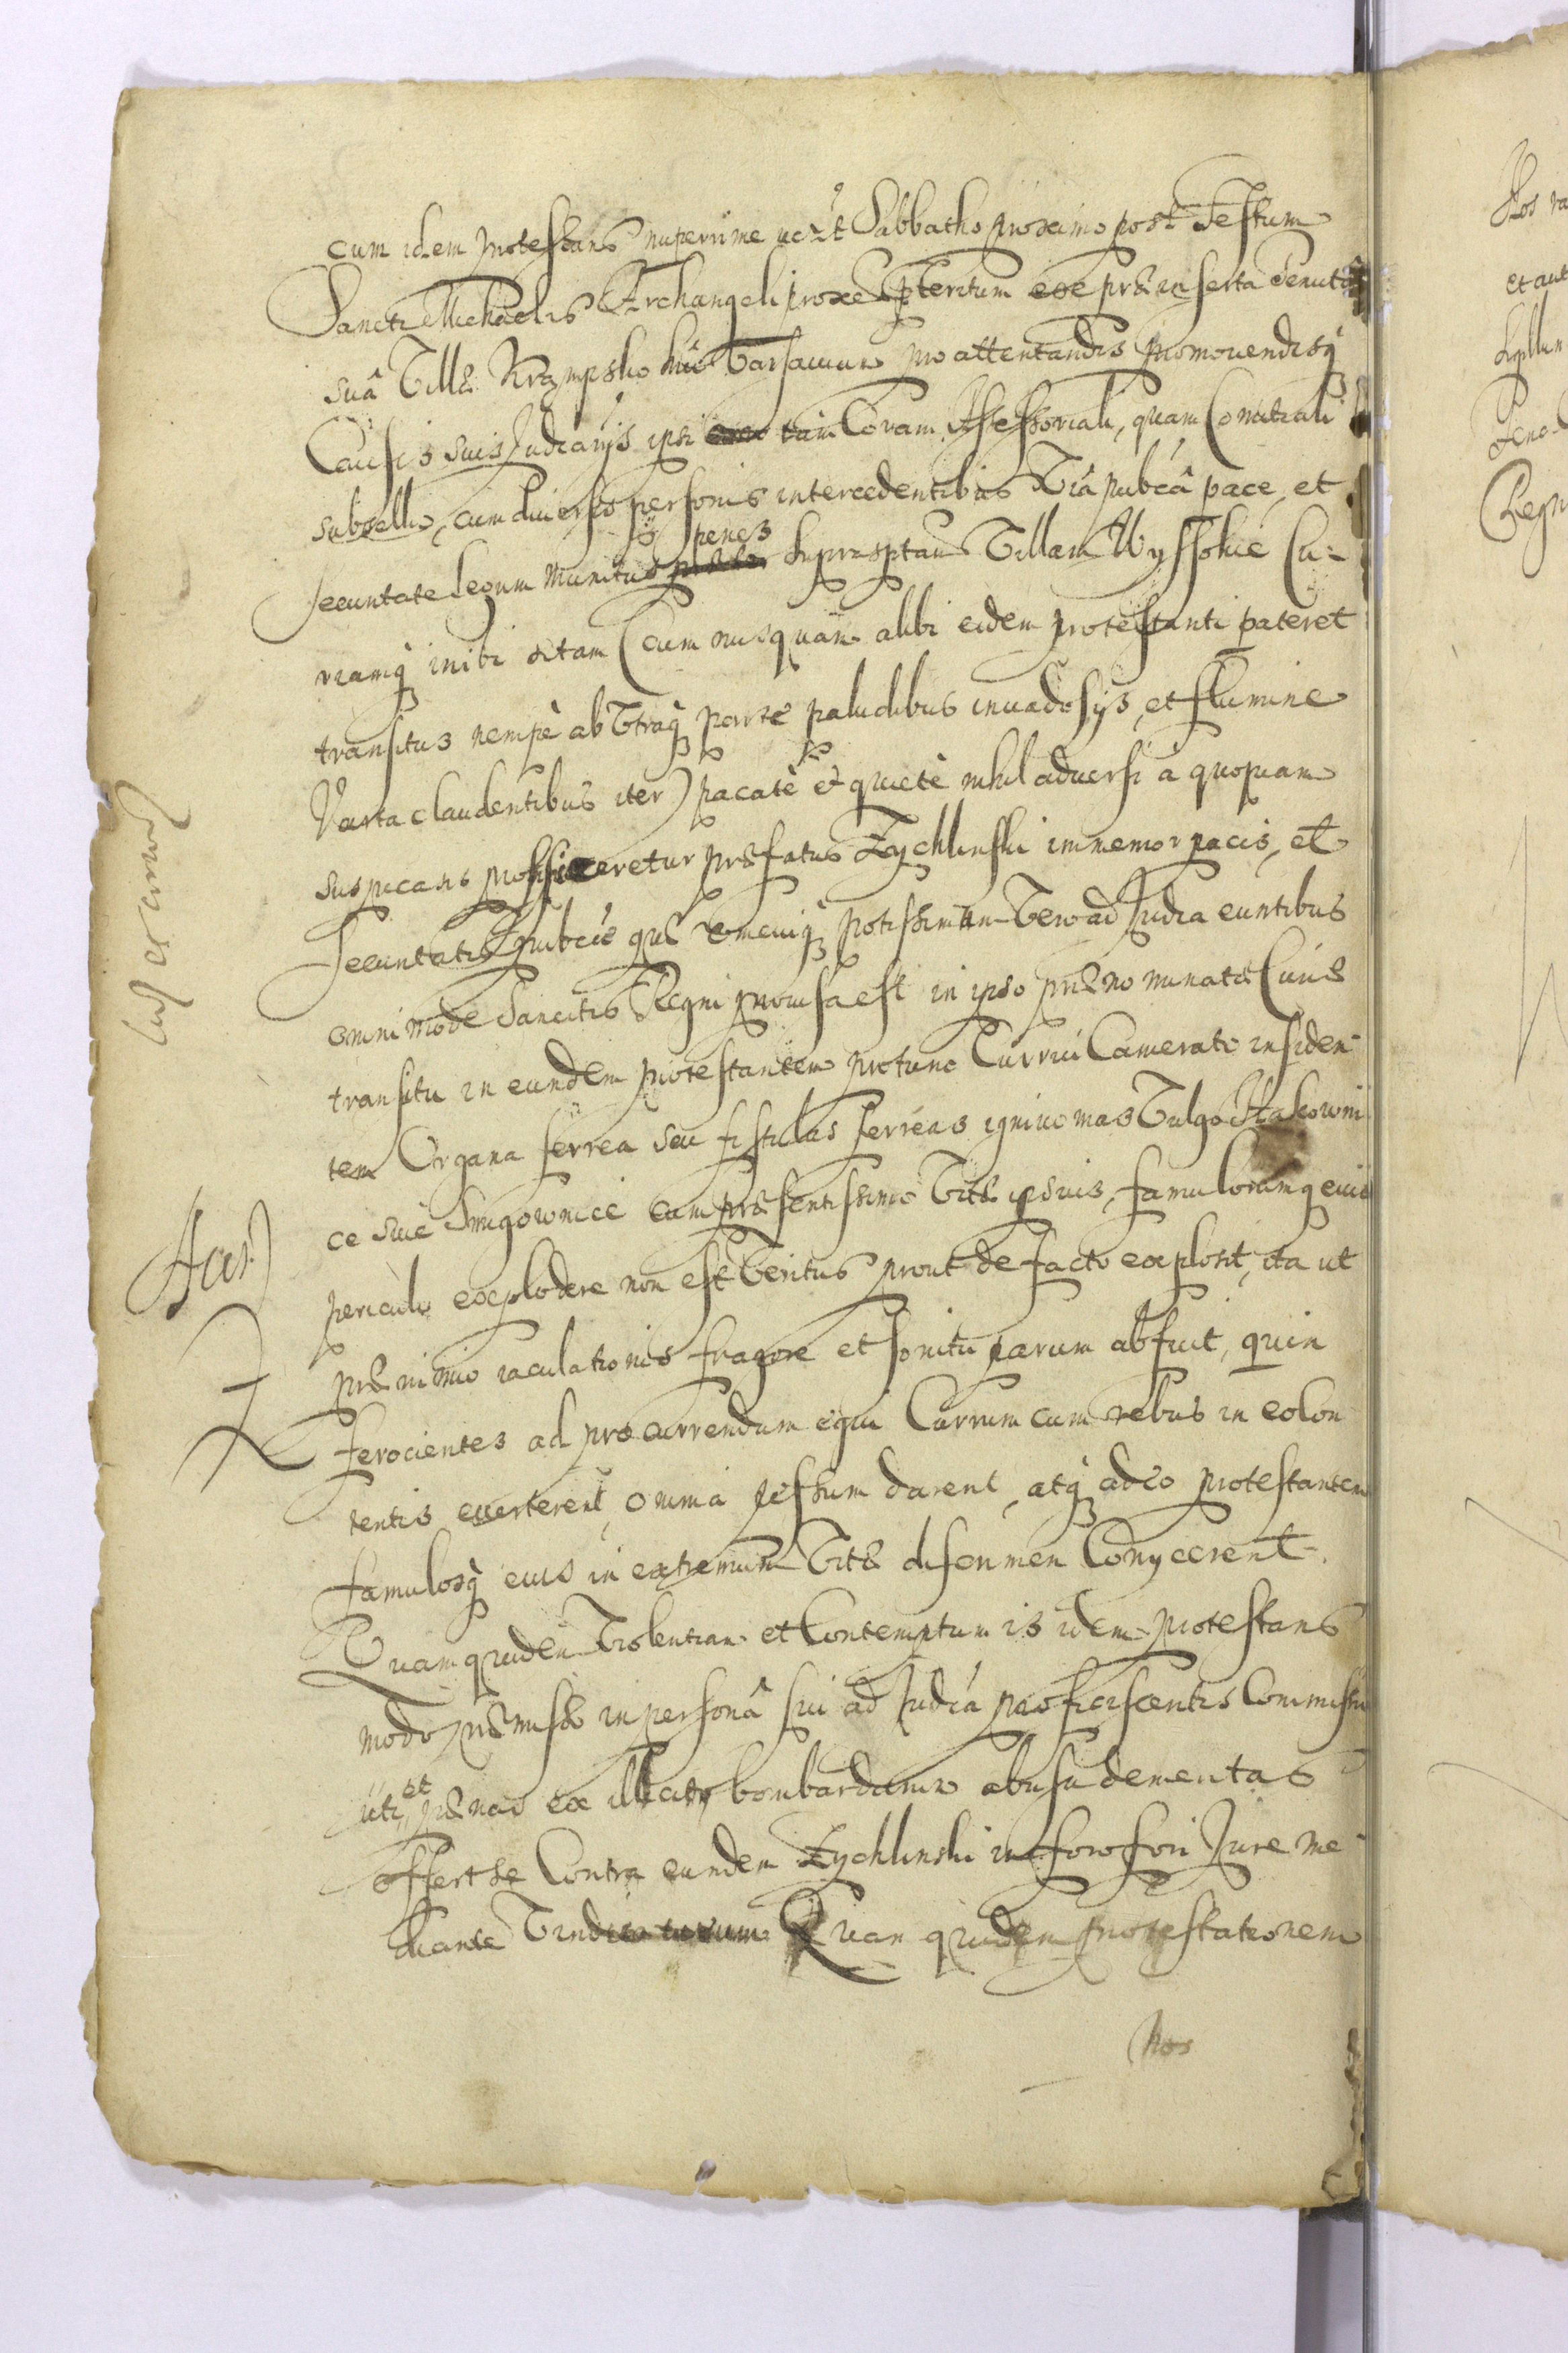 cum idem protestans nuperrime Sabbatho proximo post Festum
Sancti Michaelis Archangeli proxe pteritum exe præinserta
suâ Villæ Krąmpsko huc Varsaviam pro attentandis promovendisq
Causis suis Judiciarijs ipsi tam Coram Assessoriali, quam Comitiali
subsellio, cum diversis personis intercedentibus Viâ pubcâ pace, et
securitate Legum munitus penes supra sptam Villam Wyssokie Cu-
riamq inibi sitam (cum nusquam alibi eidem protestanti pateret
transitus nempè ab Vtraq parte paludibus invadosijs, et flumine
Varta claudentibus iter) pacatè et quietè nihil adversi à quopiam
suspicans proficisceretur præfatus Zychlinski immemor pacis, et
securitatis pubcæ quæ vnicuiq potissimum Vero ad Judia euntibus
omnimode Sancitis Regni provisa est in ipso prænominatæ Curiæ
transitu in eundem protestantem protunc Currui Camerato insiden-
tem Organa ferrea seu fistulas ferreas ignivomas Vulgo Hakowni
ce sive Smigownice cum præsentissimo Vitæ ipsius, famulorumq eius
periculo explodere non est Veritus prout de facto explosit, ita ut
præ nimio iaculationis fragore et sonitu parum abfuit, quin
ferocientes ad procurrendum equi Currum cum rebus in eo con
tentis everterent, omnia pessum darent, atq adeo protestantem
famulosq eius in extremum Vitæ discrimen Conycerent.
Quam quidem Violentiam et Contemptum is idem protestans
modo præmisso in personâ sui ad Judia proficiscentis Commissu
uti et pænas ex illicito bombardarum abusu demeritas
offert se Contra eundem Zychlinski in foro fori Jure me-
diante Quam quidem protestationem
Nos